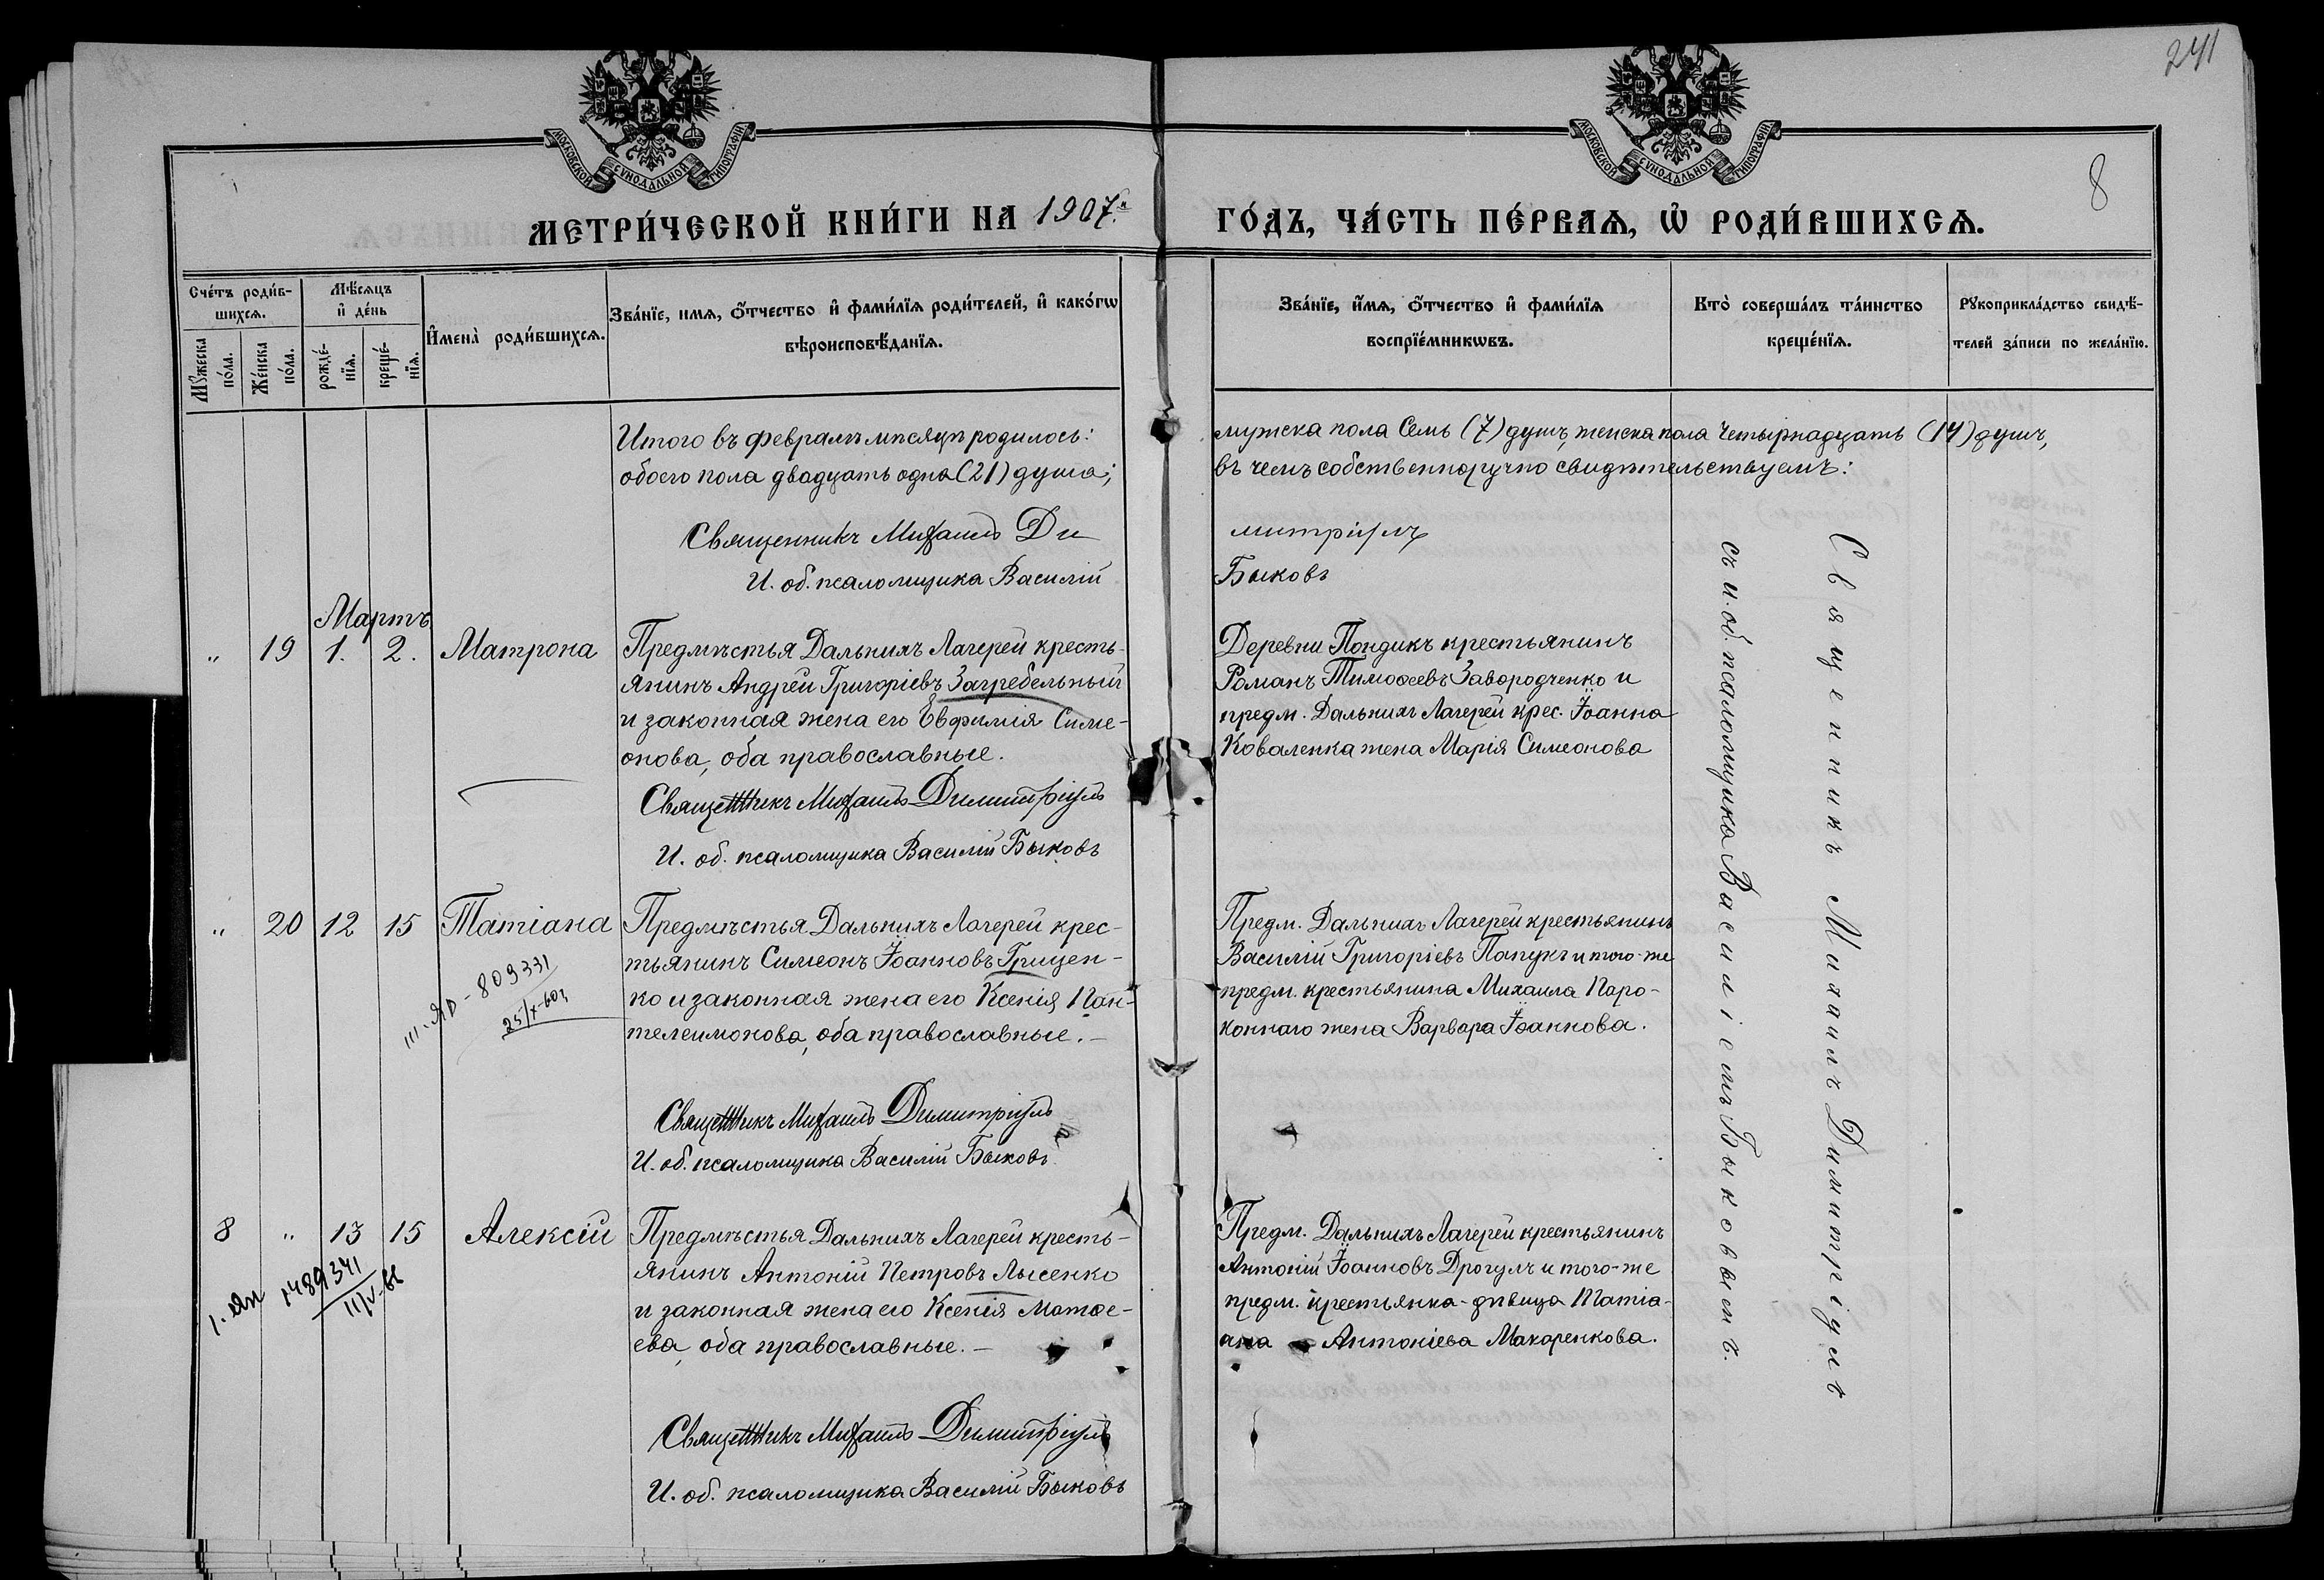 241
8
МОСКОВСКОЙ СУНОДАЛЬНОЙ ТИПОГРАФІИ.
МОСКОВСКОЙ СУНОДАЛЬНОЙ ТИПОГРАФІИ.
МЕТРИ́ЧЕСКОЙ КНИ́ГИ НА 1907.й ГО́ДЪ, ЧА́СТЬ ПЕ́РВАѦ, Ѡ РОДИ́ВШИХСѦ.
Сче́тъ роди́в-
шихсѧ.
Мꙋ́жеска по́ла.
Же́нска по́ла.
Мѣ́сѧцъ и де́нь
рожде́-нїѧ.
креще́-нїѧ.
Имена̀ роди́вшихсѧ.
Зва́нїе, имѧ, ѻ́тчество и фами́лїѧ роди́телей, и како́гѡ
вѣроисповѣ́данїѧ.
Зва́нїе, и́мѧ, ѻ́тчество и фами́лїѧ
воспрїе́мникѡвъ.
Кто̀ соверша́лъ та́инство
креще́нїѧ.
Рꙋкоприкла́дство свидѣ́-
телей за́писи по жела́нїю.
Итого въ февралѣ мѣсяцѣ родилось:
обоего пола двадцать одна (21) душа;
мужска пола Семь (7) душъ, женска пола Четырнадцать (14) душъ,
въ чемъ собственноручно свидѣтельствуемъ:
Священникъ Михаилъ Ди
митріулъ
И. об. псаломщика Василій
Быковъ
Мартъ
" 19 1. 2. Матрона
Предмѣстья Дальнихъ Лагерей кресть-
янинъ Андрей Григоріевъ Загребельный
и законная жена его Евфимія Симе-
онова, оба православные.
Священникъ Михаилъ Димитріулъ
И. об. псаломщика Василій Быковъ
Деревни Пондикъ крестьянинъ
Романъ Тимоѳеевъ Завородченко и
предм. Дальнихъ Лагерей крес. Іоанна
Коваленка жена Марія Симеонова
" 20 12 15 Татіана
III-ЯР-809331
Предмѣстья Дальнихъ Лагерей крес-
тьянинъ Симеонъ Іоанновъ Грицен-
ко и законная жена его Ксенія Пан-
телеимонова, оба православные.—
Священникъ Михаилъ Димитріулъ
И. об. псаломщика Василій Быковъ
Предм. Дальнихъ Лагерей крестьянинъ
Василій Григоріевъ Папукъ и того-же
предм. крестьянина Михаила Паро-
коннаго жена Варвара Іоаннова.
8 " 13 15 Алексій
Предмѣстья Дальнихъ Лагерей кресть-
янинъ Антоній Петровъ Лысенко
и законная жена его Ксенія Матѳе-
ева, оба православные.—
Священникъ Михаилъ Димитріулъ
И. об. псаломщика Василій Быковъ
Предм. Дальнихъ Лагерей крестьянинъ
Антоній Іоанновъ Дрогулъ и того-же
предм. крестьянка-дѣвица Татіа-
ана Антоніева Макаренкова.
Священникъ Михаилъ Димитріулъ
съ и. об. псаломщика Василіемъ Быковымъ.